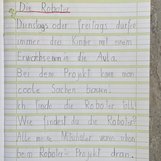 Die Roboter
Dienstags oder Freitags dürfen
immer drei Kinder mit einem
Erwachsenen in die Aula.
Bei dem Projekt kann man
coole Sachen bauen.
Ich finde die Roboter toll.
Wie findest du die Roboter?
Alle meine Mitschüler waren schon
beim Roboter-Projekt dran.